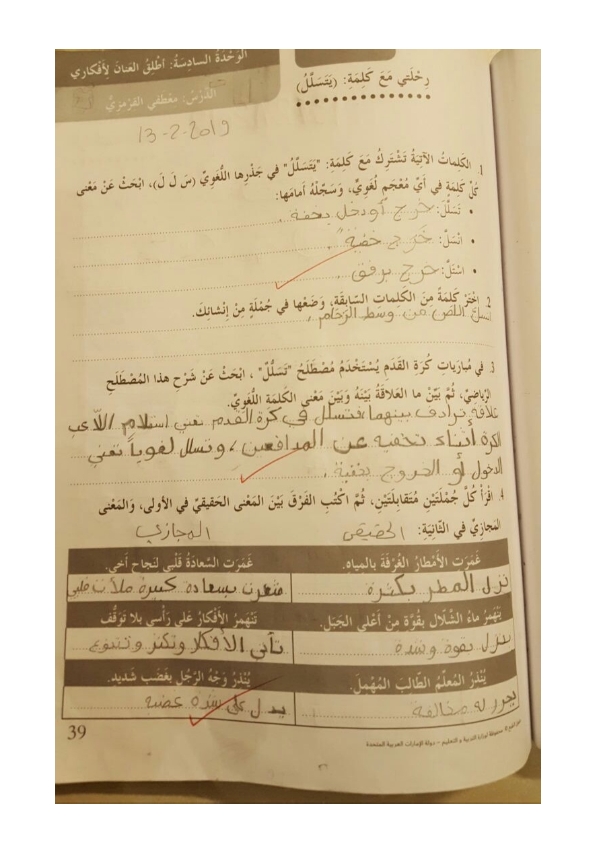 الوَحْدَةُ السادِسَةُ: أُطْلِقُ العَنانَ لِأَفْكاري
الدَّرْسُ: مِعْطَفي القِرْمِزِيُّ
رِحْلَتي مَعَ كَلِمَةِ: (يَتَسَلَّلُ)
13-2-2019
1. الكَلِماتُ الآتِيَةُ تَشْتَرِكُ مَعَ كَلِمَةِ: "يَتَسَلَّلُ" في جَذْرِها اللُّغَوِيِّ (سَ لَ لَ)، ابْحَثْ عَنْ مَعْنى
كُلِّ كَلِمَةٍ في أَيِّ مُعْجَمٍ لُغَوِيٍّ، وَسَجِّلْهُ أَمامَها:
• تَسَلَّلَ: خرج أو دخل بخفة.
• انْسَلَّ: خَرَج خفية.
• اسْتَلَّ: خرج برفق.
2. اخْتَرْ كَلِمَةً مِنَ الكَلِماتِ السّابِقَةِ، وَضَعْها في جُمْلَةٍ مِنْ إِنْشائِكَ.
انسل اللص من وسط الزحام.
3. في مُبارَياتِ كُرَةِ القَدَمِ يُسْتَخْدَمُ مُصْطَلَحُ "تَسَلُّلٌ" ، ابْحَثْ عَنْ شَرْحِ هذا المُصْطَلَحِ
الرِّياضِيِّ، ثُمَّ بَيِّنْ ما العَلاقَةُ بَيْنَهُ وَبَيْنَ مَعْنى الكَلِمَةِ اللُّغَوِيِّ.
علاقة ترادف بينهما فتسلل في كرة القدم تعني استلام اللاعب
الكرة أثناء تخفيه عن المدافعين، وتسلل لغوياً تعني
الدخول أو الخروج بخفية.
4. اقْرَأْ كُلَّ جُمْلَتَيْنِ مُتَقابِلَتَيْنِ، ثُمَّ اكْتُبِ الفَرْقَ بَيْنَ المَعْنى الحَقيقيِّ في الأولى، وَالمَعْنى
المَجازِيِّ في الثّانِيَةِ: الحقيقي المجازي
غَمَرَتِ الأَمْطارُ الغُرْفَةَ بِالمِياهِ. غَمَرَتِ السَّعادَةُ قَلْبي لِنَجاحِ أَخي.
نزل المطر بكثرة شعرت بسعادة كبيرة ملأت قلبي
يَنْهَمِرُ ماءُ الشَّلّالِ بِقُوَّةٍ مِنْ أَعْلى الجَبَلِ. تَنْهَمِرُ الأَفْكارُ عَلى رَأْسي بِلا تَوَقُّفٍ
ينزل بقوة وشدة تأتي الأفكار وتكثر وتتنوع
يُنْذِرُ المُعَلِّمُ الطّالِبَ المُهْمِلَ. يُنْذِرُ وَجْهُ الرَّجُلِ بِغَضَبٍ شَديدٍ.
يحرر له مخالفة يدل على شدة غضبه
39
حقوق الطبع © محفوظة لوزارة التربية والتعليم - دولة الإمارات العربية المتحدة